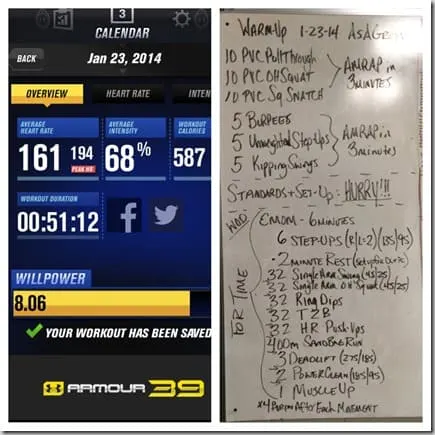 3
CALENDAR
BACK
Jan 23, 2014
OVERVIEW
HEART RATE
INTEN
AVERAGE HEART RATE
161
194
PEAK HR
AVERAGE INTENSITY
68%
WORKOUT CALORIES
587
WORKOUT DURATION
00:51:12
WILLPOWER
8.06
YOUR WORKOUT HAS BEEN SAVED
ARMOUR 39
WARM-UP 1-23-14 AS A GROUP
10 PVC Pull Through
10 PVC OH SQUAT
10 PVC Sq SNATCH
AMRAP in 3 minutes
5 BURPEES
5 Unweighted Step-Ups
5 Kipping Swings
AMRAP in 3 minutes
STANDARDS + SET-UP - HURRY!!!
WOD
EMOM - 6 MINUTES
6 STEP-UPS (R/L=2) (135/95)
2 MINUTE REST
FOR TIME
32 Single Arm Swing (45/25)
32 Single Arm OH Squat (45/25)
32 Ring Dips
32 T2B
32 HR Push-Ups
400m SANDBAG RUN
3 DEADLIFT (275/185)
2 POWER CLEAN (135/95)
1 MUSCLE UP
*4 Burpees After Each MOVEMENT